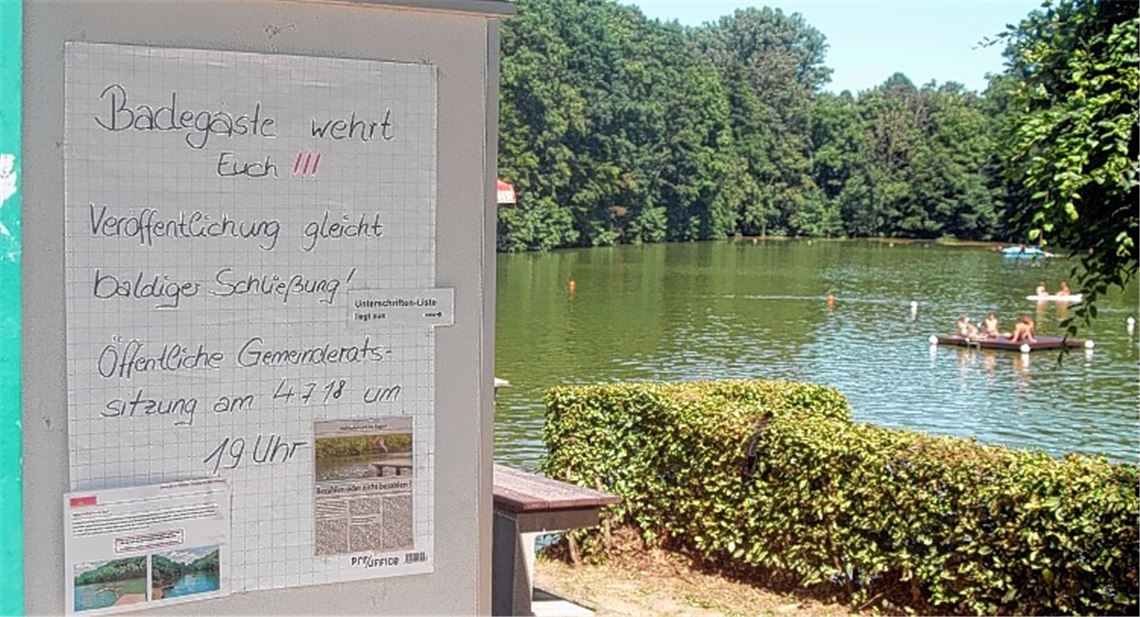 Badegäste wehrt
Euch !!!
Veröffentlichung gleicht
baldiger Schließung!
Unterschriften-Liste
liegt aus
Öffentliche Gemeinderats-
sitzung am 4 7 18 um
19 Uhr
Bezahlen oder nicht bezahlen!
PRO/OFFICE